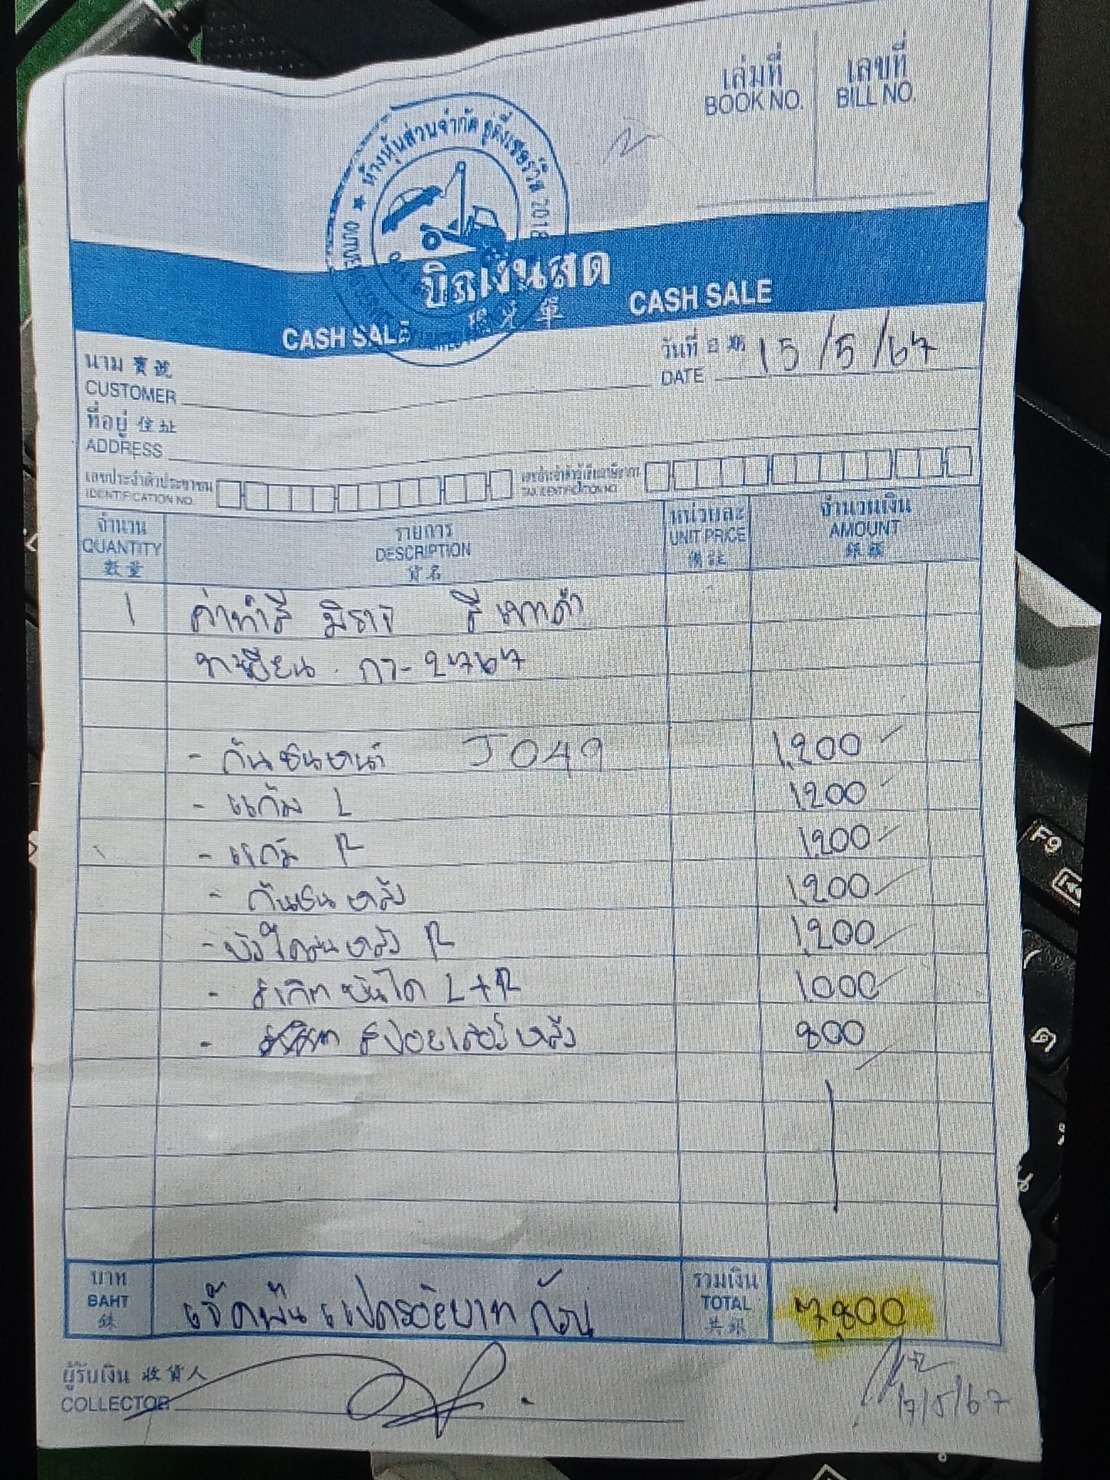 เล่มที่
BOOK NO.
เลขที่
BILL NO.
ห้างหุ้นส่วนจำกัด อู่ดี๋เซอร์วิส 2018
บิลเงินสด
CASH SALE 現兌單 CASH SALE
นาม 寳號
CUSTOMER
วันที่ 日期 15/5/67
DATE
ที่อยู่ 住址
ADDRESS
เลขประจำตัวประชาชน
IDENTIFICATION NO.
เลขประจำตัวผู้เสียภาษีอากร
TAX IDENTIFICATION NO.
จำนวน
QUANTITY
数量
รายการ
DESCRIPTION
貨名
หน่วยละ
UNIT PRICE
備註
จำนวนเงิน
AMOUNT
銀額
1 ค่าทำสี มิราจ สีเทาดำ
ทะเบียน กว-2767
- กันชนหน้า J049 1,200
- แก้ม L 1200
- แก้ม R 1,200
- กันชนหลัง 1,200
- บังโคลนหลัง R 1,200
- สเกิ๊ตบันได L+R 1,000
- สปอยเลอร์หลัง 800
บาท
BAHT
銖
เจ็ดพันแปดร้อยบาทถ้วน
รวมเงิน
TOTAL
共銀
7,800
ผู้รับเงิน 收貨人
COLLECTOR
17/5/67